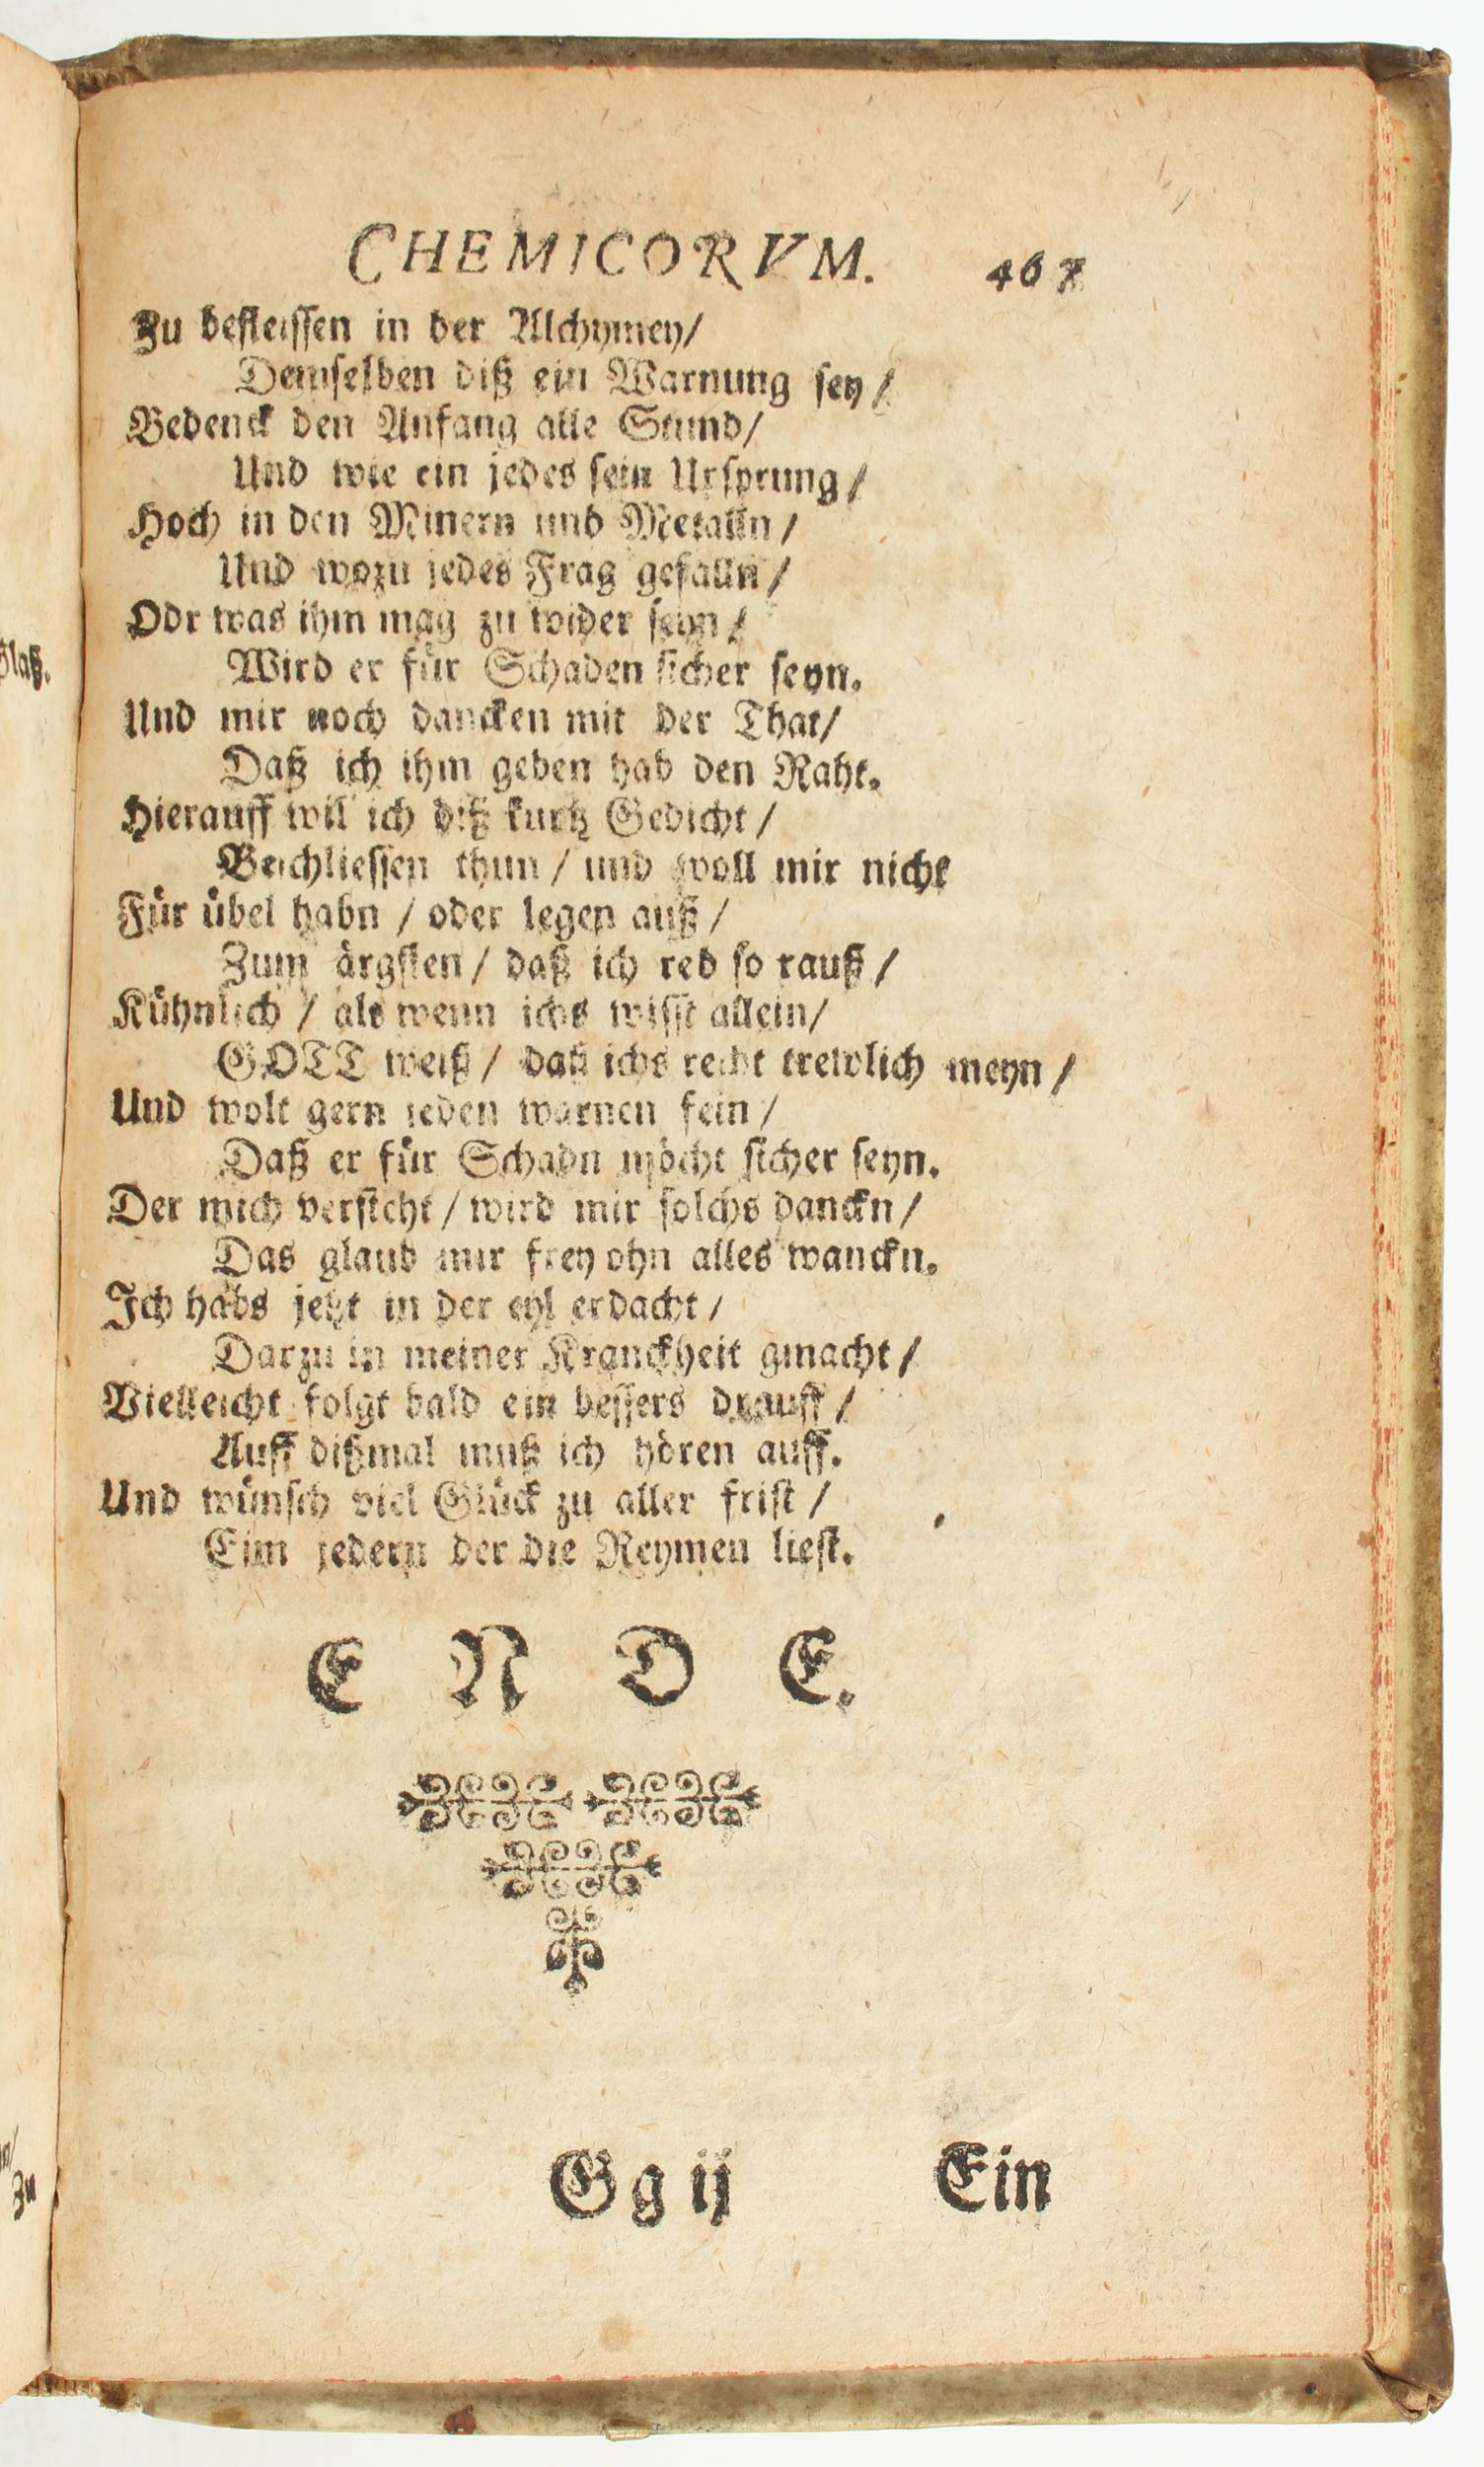 CHEMICORVM. 467
Zu befleissen in der Alchymey/
Demselben diß ein Warnung sey/
Bedenck den Anfang alle Stund/
Und wie ein jedes sein Ursprung/
Hoch in den Minern und Metalln/
Und wozu jedes Frag gefalln/
Odr was ihm mag zu wider seyn/
Wird er für Schaden sicher seyn.
Und mir noch dancken mit der That/
Daß ich ihm geben hab den Raht.
Hierauff wil ich diß kurtz Gedicht/
Beschliessen thun/ und woll mir nicht
Für übel habn/ oder legen auß/
Zum ärgsten/ daß ich red so rauß/
Kühnlich/ als wenn ichs wisst allein/
GOTT weiß/ daß ichs recht trewlich meyn/
Und wolt gern jeden warnen fein/
Daß er für Schadn möcht sicher seyn.
Der mich versteht/ wird mir solchs danckn/
Das glaub mir frey ohn alles wanckn.
Ich habs jetzt in der eyl erdacht/
Darzu in meiner Kranckheit gmacht/
Vielleicht folgt bald ein bessers drauff/
Auff dißmal muß ich hören auff.
Und wünsch viel Glück zu aller frist/
Eim jedern der die Reymen liest.
E N D E.
Gg ij Ein
Zu